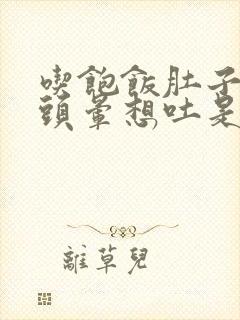 喫飽飯肚子
頭暈想吐是
離草兒